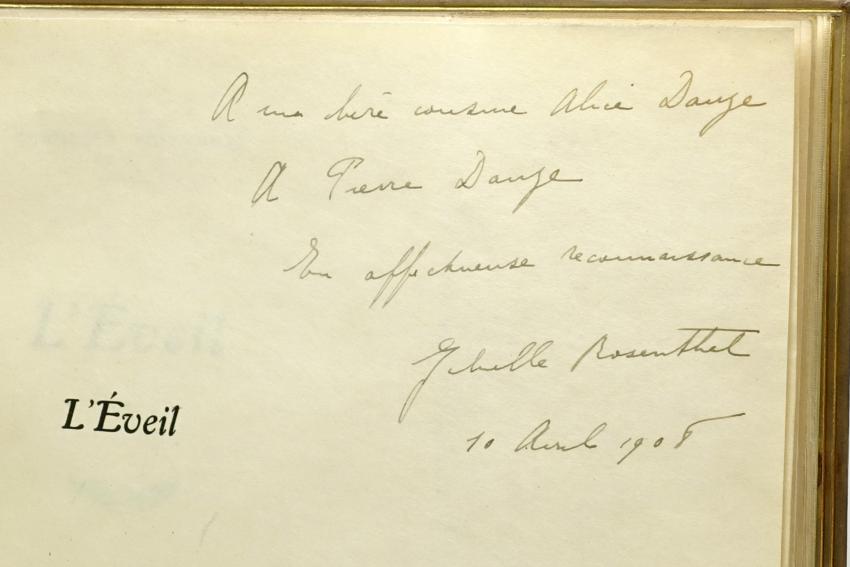 A ma chère cousine Alice Dauze
A Pierre Dauze
En affectueuse reconnaissance
Rosenthal
10 Avril 1908
L'Éveil